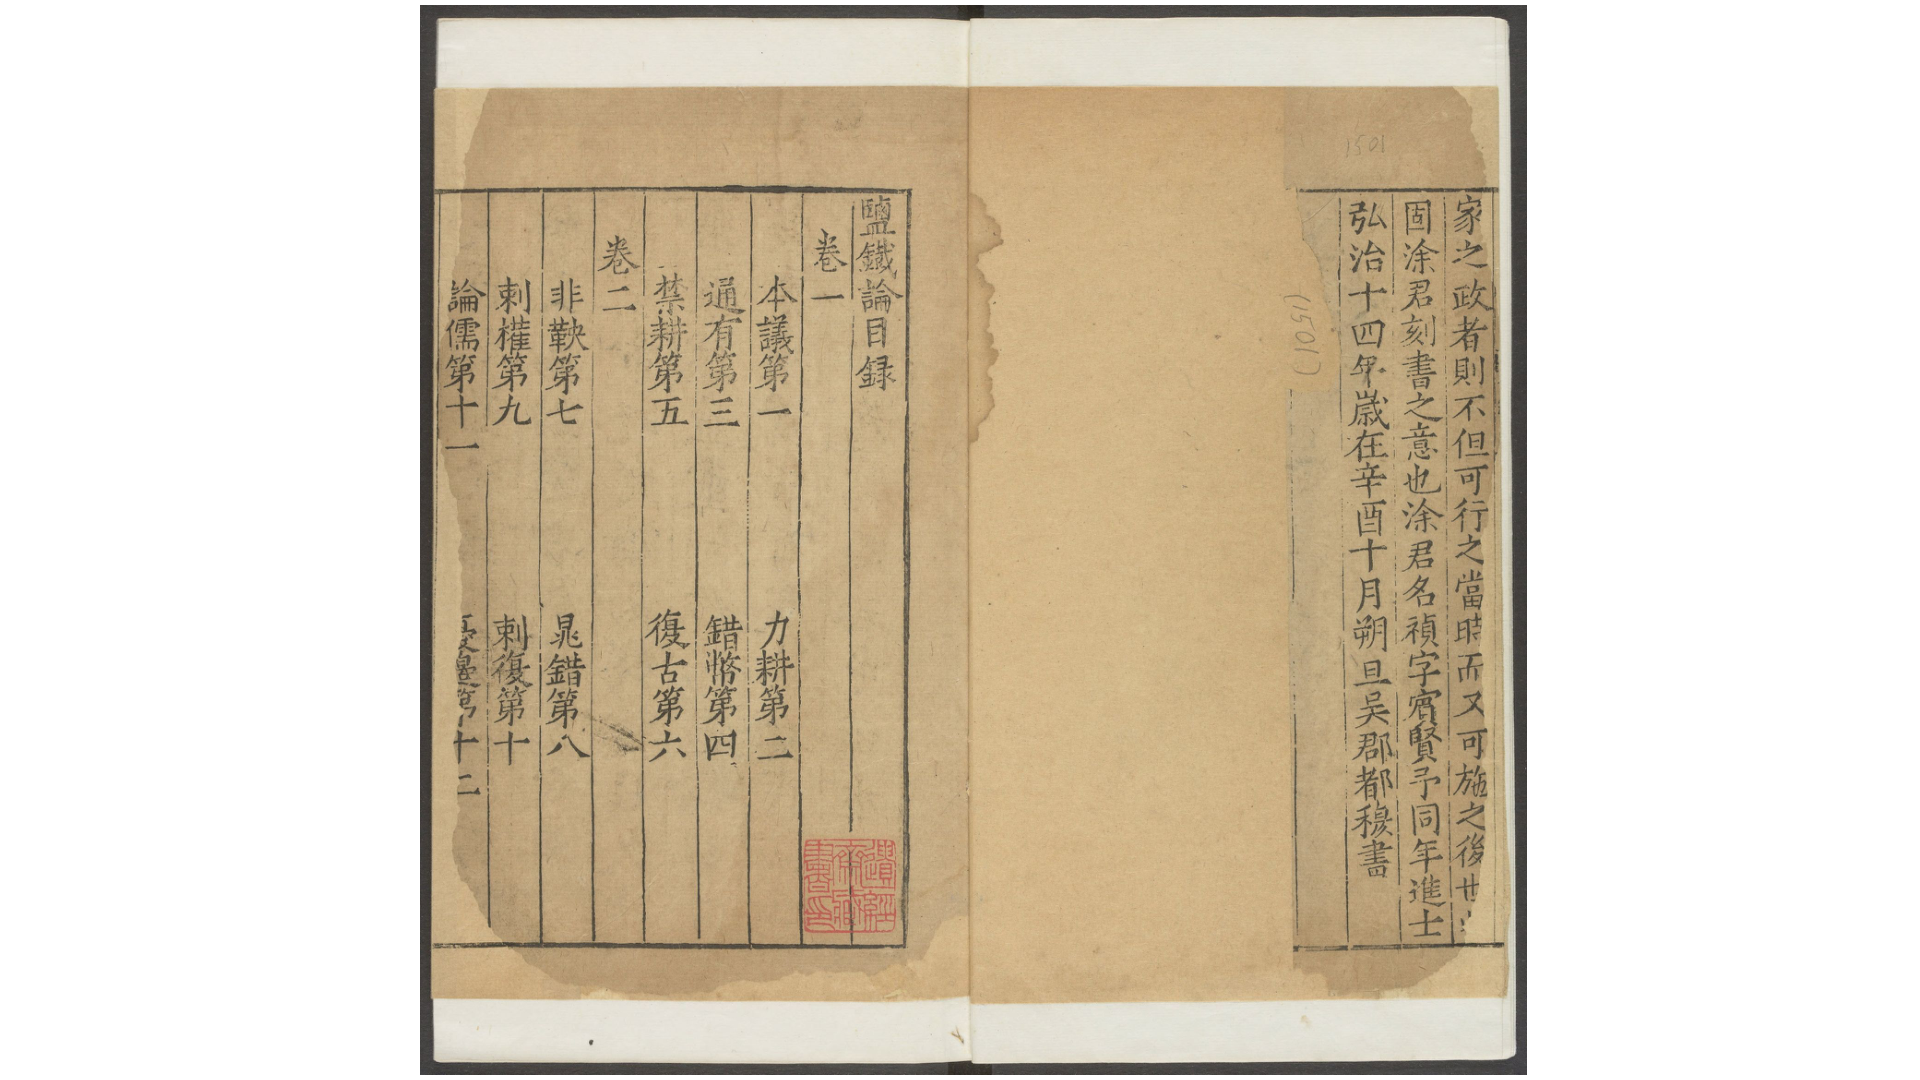 家之政者則不但可行之當時而又可施之後世
固涂君刻書之意也涂君名禎字賓賢予同年進士
弘治十四年歲在辛酉十月朔旦吳郡都穆書
1501
(1501)
鹽鐵論目録
卷一
本議第一 力耕第二
通有第三 錯幣第四
禁耕第五 復古第六
卷二
非鞅第七 晁錯第八
刺權第九 刺復第十
論儒第十一 憂邊第十二